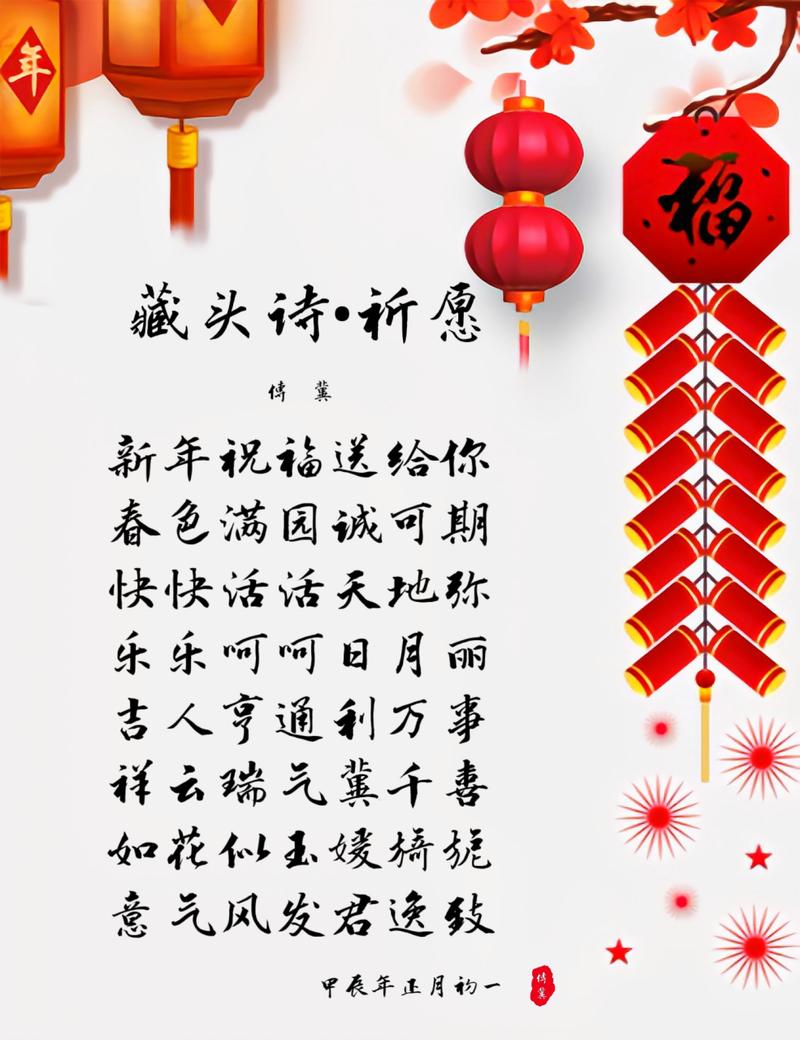 年
福
藏头诗•祈愿
傳冀
新年祝福送给你
春色满园诚可期
快快活活天地弥
乐乐呵呵日月丽
吉人亨通利万事
祥云瑞气冀千喜
如花似玉媛旖旎
意气风发君逸致
甲辰年正月初一
傳冀